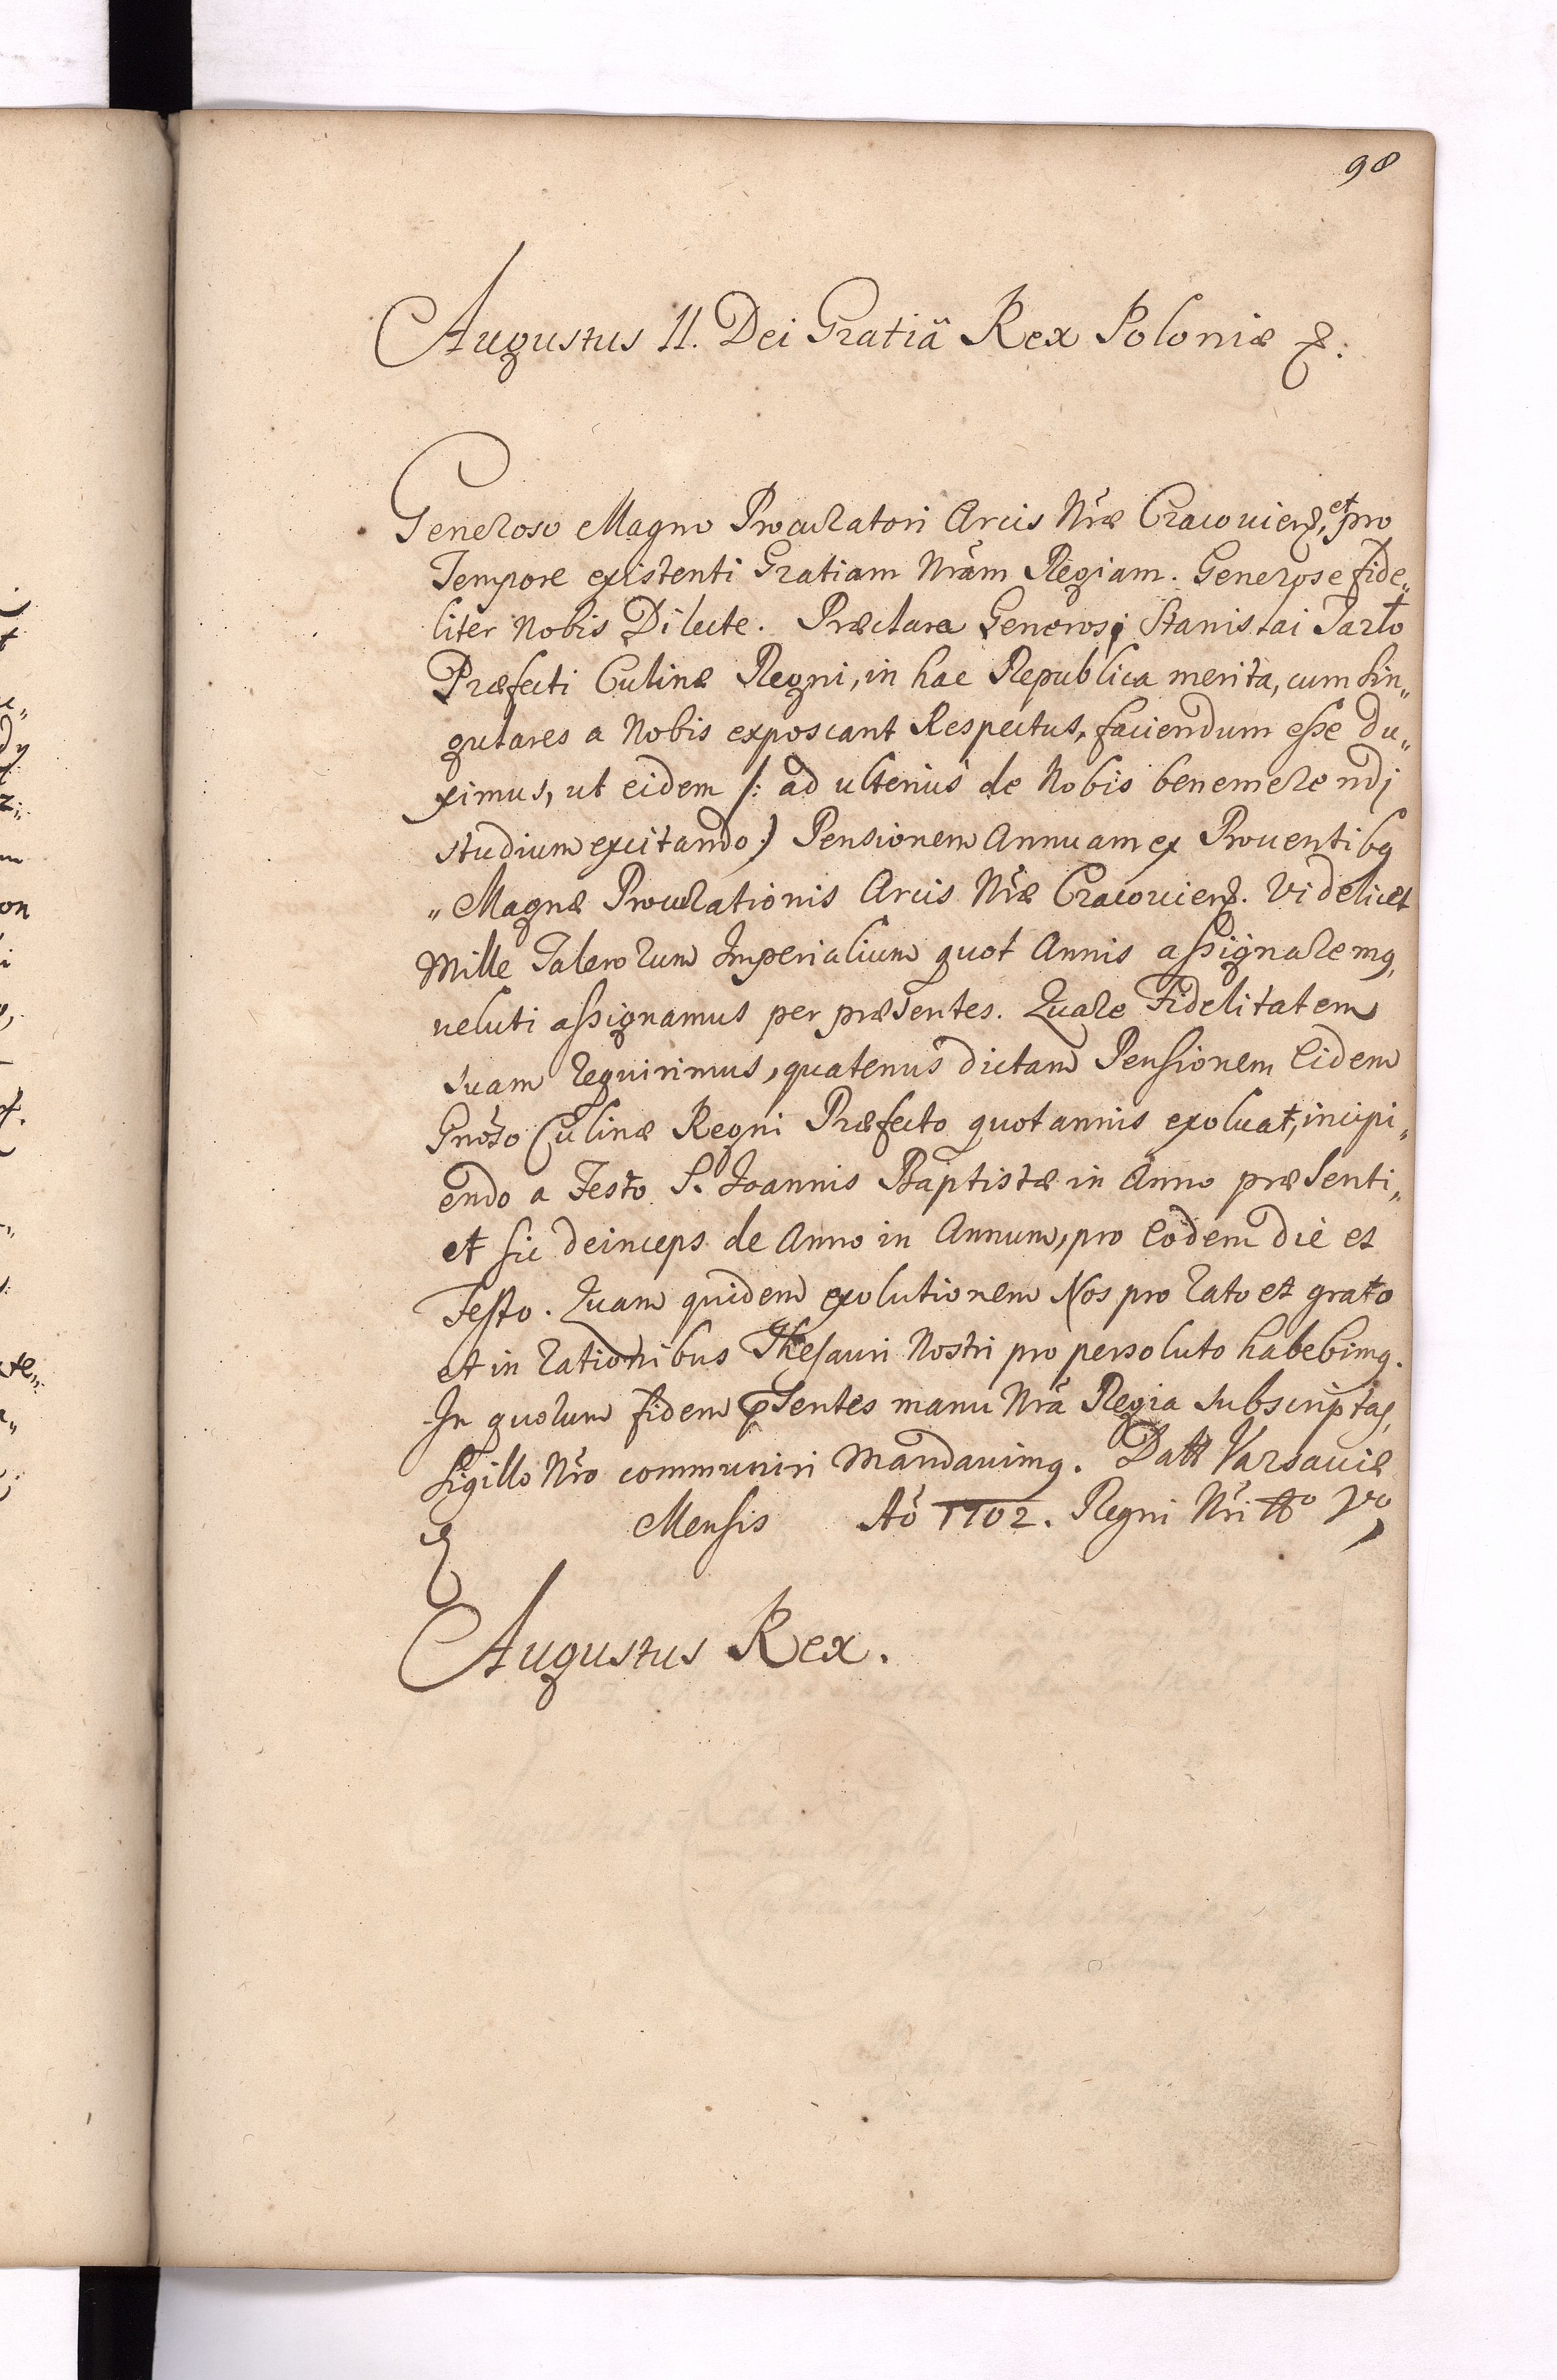 98
Augustus II. Dei Gratiâ Rex Poloniæ &:
Generoso Magno Procuratori Arcis Nr̃æ Cracouiens, et pro
Tempore existenti Gratiam Nr̃am Regiam. Generose fide„
liter Nobis Dilecte. Præclara Generosi Stanislai Tarło
Præfecti Culinæ Regni, in hac Republica merita, cum sin„
gulares a Nobis exposcant Respectus, faciendum esse du„
ximus, ut eidem /: ad ulterius de Nobis benemerendi
studium excitando:) Pensionem Annuam ex Prouentibq
„Magnæ Procurationis Arcis Nr̃æ Cracouiens. Videlicet
Mille Talerorum Imperialium quot Annis assignaremq,
ueluti assignamus per præsentes. Quare Fidelitatem
suam requirimus, quatenus dictam Pensionem Eidem
Gnõso Culinæ Regni Præfecto quotannis exoluat, incipi„
endo a Festo S. Joannis Baptistæ in Anno præsenti„
et sic deinceps de Anno in Annum, pro Eodem die et
Festo. Quam quidem exolutionem Nos pro rato et grato
et in rationibus Thesauri Nostri pro persoluto habebimq.
In quorum fidem pſentes manu Nr̃a Regia subscriptas,
Sigillo Nr̃o communiri mandauimq. Datt Varsauiæ
Mensis Aõ 1702. Regni Nr̃i Vto
Augustus Rex.